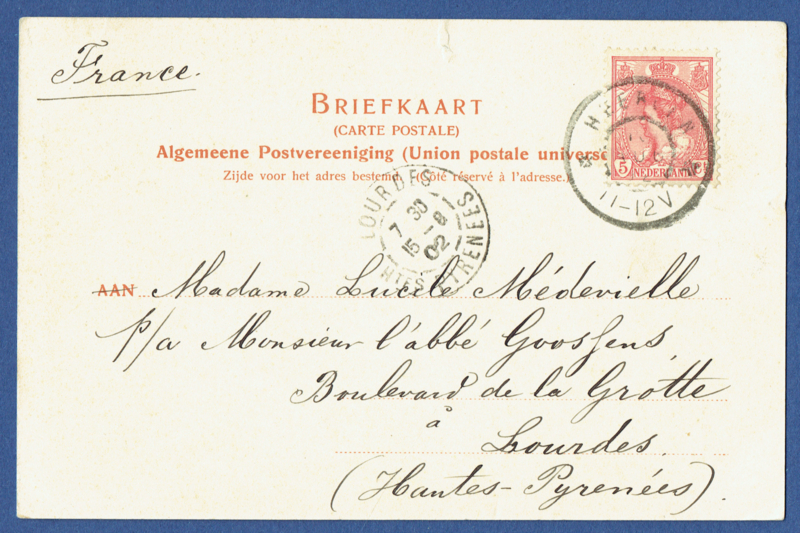 France.
BRIEFKAART
(CARTE POSTALE)
Algemeene Postvereeniging (Union postale universe
Zijde voor het adres bestemd. (Côté réservé à l'adresse.)
5 NEDERLAND ct
11-12V
LOURDES
7 30
15 - 8
02
HTES PYRENEES
AAN Madame Lucile Médevielle
p/a Monsieur l'abbé Goossens,
Boulevard de la Grotte
à
Lourdes.
(Hautes-Pyrenées).